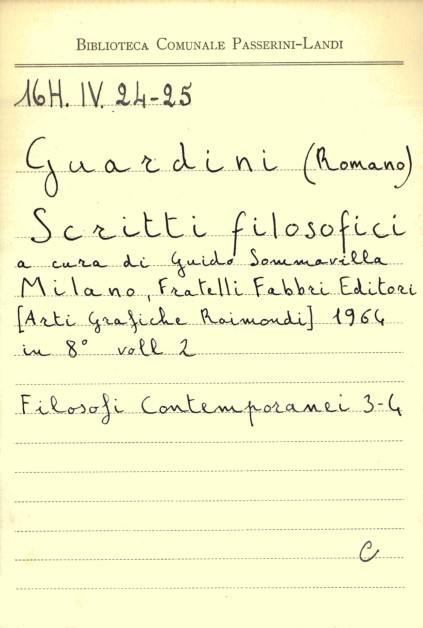 BIBLIOTECA COMUNALE PASSERINI-LANDI
16H. IV. 24-25
Guardini (Romano)
Scritti filosofici
a cura di Guido Sommavilla
Milano, Fratelli Fabbri Editori
[Arti Grafiche Raimondi] 1964
in 8° voll 2
Filosofi Contemporanei 3-4
C